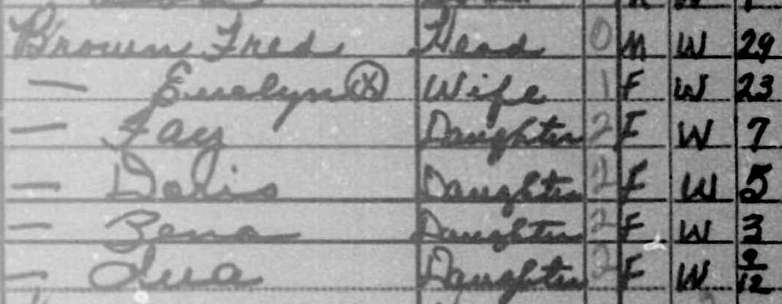 Brown Fred Head 0 M W 29
— Evelyn Ⓧ Wife 1 F W 23
— Fay Daughter 2 F W 7
— Doris Daughter 2 F W 5
— Daughter 2 F W 3
— Daughter 2 F W